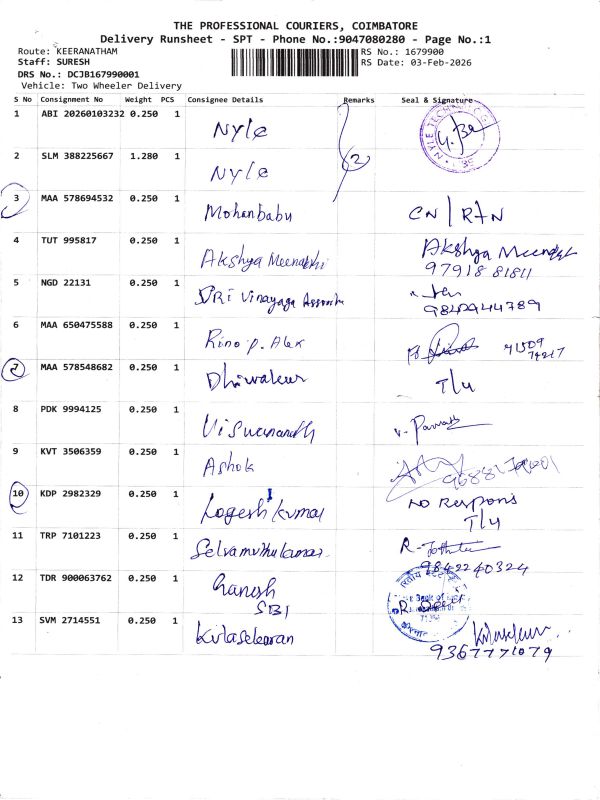 THE PROFESSIONAL COURIERS, COIMBATORE
Delivery Runsheet - SPT - Phone No.:9047080280 - Page No.:1
Route: KEERANATHAM
RS No.: 1679900
Staff: SURESH
RS Date: 03-Feb-2026
DRS No.: DCJB167990001
Vehicle: Two Wheeler Delivery
S No Consignment No Weight PCS Consignee Details Remarks Seal & Signature
1 ABI 20260103232 0.250 1 Nyle
2 SLM 388225667 1.280 1 Nyle (2)
3 MAA 578694532 0.250 1 Mohanbabu CN / RTN
4 TUT 995817 0.250 1 Akshya Meenakshi Akshya
9791881811
5 NGD 22131 0.250 1 SRI Vinayaga
6 MAA 650475588 0.250 1 Rino p. Alex
7 MAA 578548682 0.250 1 Dhiwakar T/4
8 PDK 9994125 0.250 1 Viswananth
9 KVT 3506359 0.250 1 Ashok
10 KDP 2982329 0.250 1 Logesh kumar NO Respons
T/4
11 TRP 7101223 0.250 1 Selvamuthukumar R-
9842240324
12 TDR 900063762 0.250 1 Ganesh
SBI
13 SVM 2714551 0.250 1 Kulasekaran Kulasekaran
9367771079